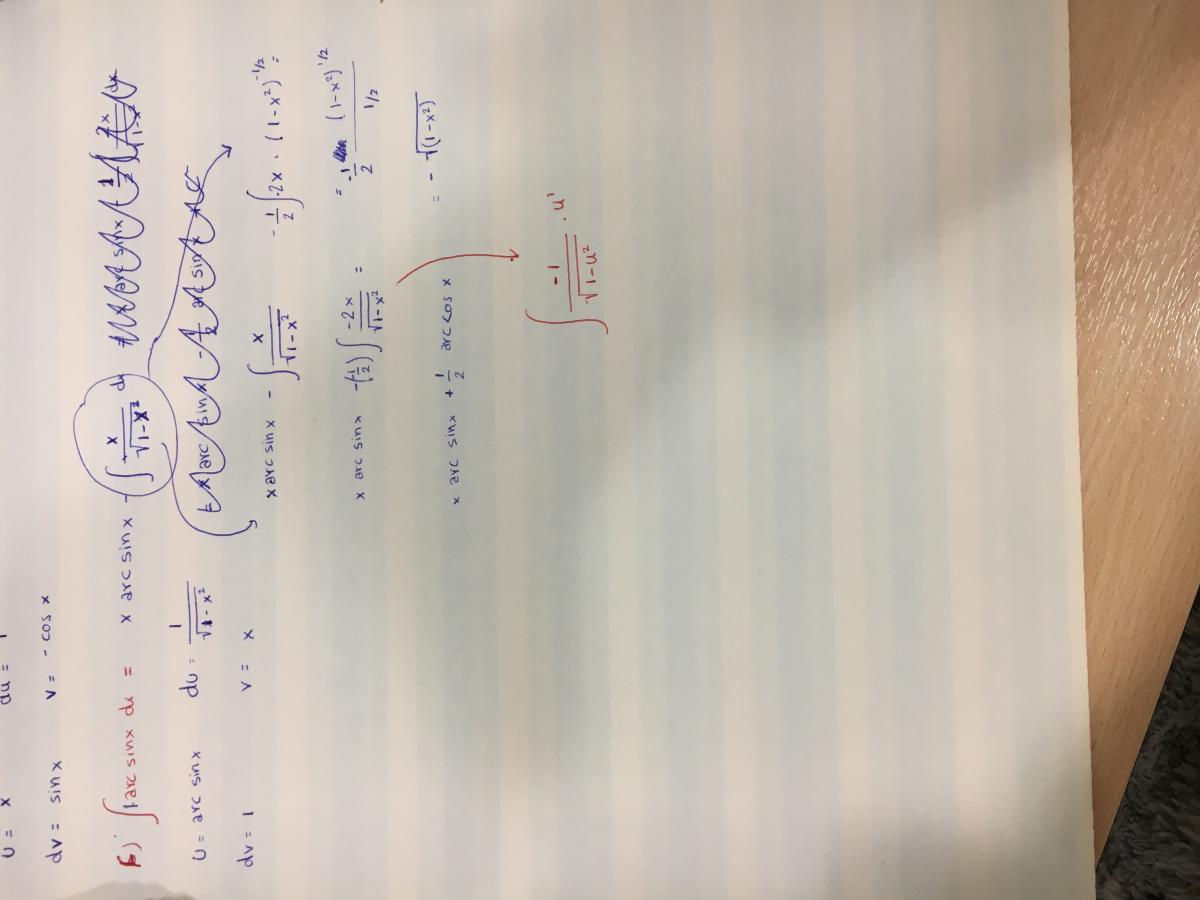 u = x du = 1
dv = sin x v = - cos x
∫1 arc sin x dx = x arc sin x - ∫ x/√(1-x²) dx
u = arc sin x du = 1/√(1-x²)
dv = 1 v = x
x arc sin x - ∫ x/√(1-x²)
- 1/2 ∫ -2x · (1-x²)^(-1/2) =
x arc sin x -(-1/2) ∫ -2x/√(1-x²) =
= -1/2 (1-x²)^(1/2) / (1/2)
x arc sin x + 1/2 arc cos x
= - √(1-x²)
∫ -1/√(1-u²) · u'